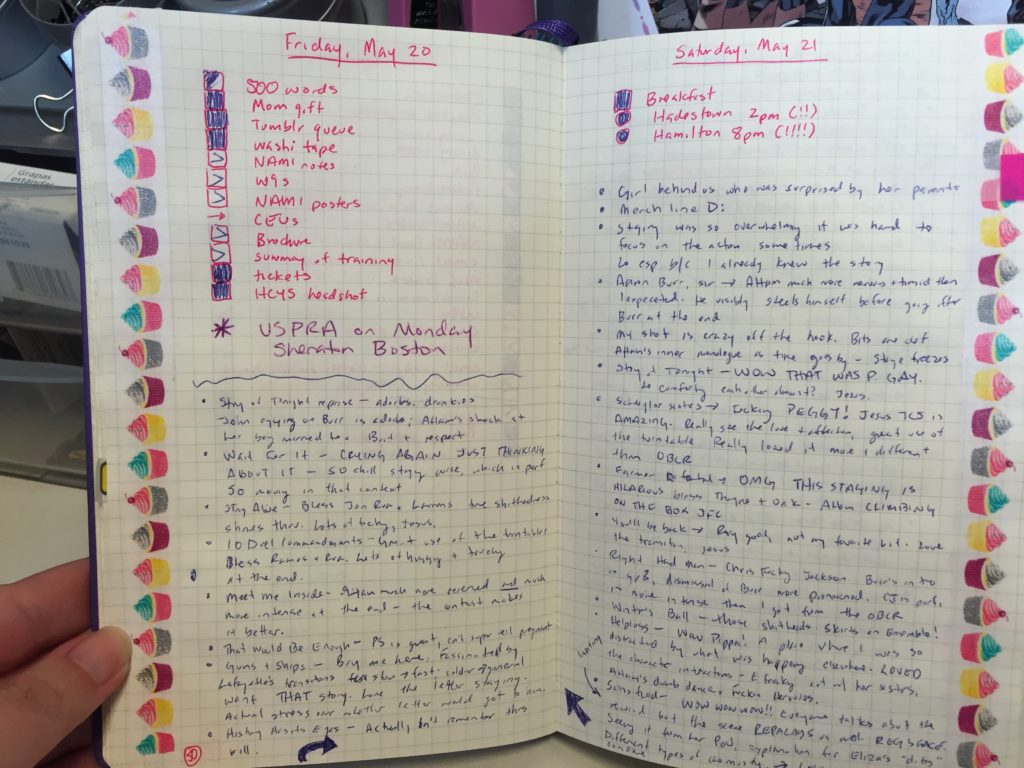 Friday, May 20
500 words
Mom gift
Tumblr queue
washi tape
NAMI notes
W9s
NAMI posters
CEUs
Brochure
summary of training
tickets
HCYS headshot
USPRA on Monday
Sheraton Boston
Story of Tonight reprise – adorbs. drunkies
John egging on Burr is adorbs;
her being married too. Built + respect
Wait For It – CRYING AGAIN JUST THINKING
ABOUT IT – SO chill staging wise, which is perf
So moving in that context
Stay Alive – Bless Jon Rua.
shines thru. Lots of techy, Jesus.
10 Duel Commandments – Great use of the turntables
Bless Ramos + Rua. Lots of huggy + touchy
at the end.
Meet Me Inside – much more reserved and much
more intense at the end – the contrast makes
it better.
That Would Be Enough – PS is great, isn't super well pregnant
Guns + Ships – Bury me here, fascinated by
Lafayette's transitions slow → fast, soldier → general
want THAT story. Love the letter staging.
Actual stress over whether letter would get to him.
History Has Its Eyes – Actually don't remember this
well.
50
Saturday, May 21
Breakfast
Hadestown 2pm (!!)
Hamilton 8pm (!!!!)
Girl behind us who was surprised by her parents
Merch line D:
Staging was so overwhelming it was hard to
focus on the action some times
↳ esp b/c I already knew the story
Aaron Burr, sir → much more nervous + timid than
I expected. He visibly steels himself before going after
Burr at the end
My shot is crazy off the hook. Bits are def
inner monologue as time goes by – Stage freezes
Story of Tonight – WOW THAT WAS P. GAY.
↳ comforting each other almost? Jesus.
Schuyler sisters → fucking PEGGY! Jesus JCS is
AMAZING. Really see the love + affection, great use of
the turntable. Really loved it more + different
than OBCR
Farmer Refuted → OMG THIS STAGING IS
HILARIOUS bless Thayne + Oak – CLIMBING
ON THE BOX JFC
You'll be back → Rory good, not my favorite bit. Love
the transition, jesus
Right Hand Man – Chris Fucking Jackson. Burr's intro
is great, dismissal of Burr more pronounced. CJ is perf,
is more intense than I got from the OBCR
Winter's Ball – those shitheads. Skirts on Ensemble!
Helpless – Wow Pippa! A place where I was so
distracted by what was happening elsewhere. LOVED
the character interactions – E freaky out w/ her sisters.
dumb dance. Fuckin dorkies.
Satisfied – WOW WOW WOW!! Everyone talks about the
rewind but the scene REPLAYS as well. REGS FACE.
Seeing it from her POV, explanation for Eliza's
Different types of chemistry →